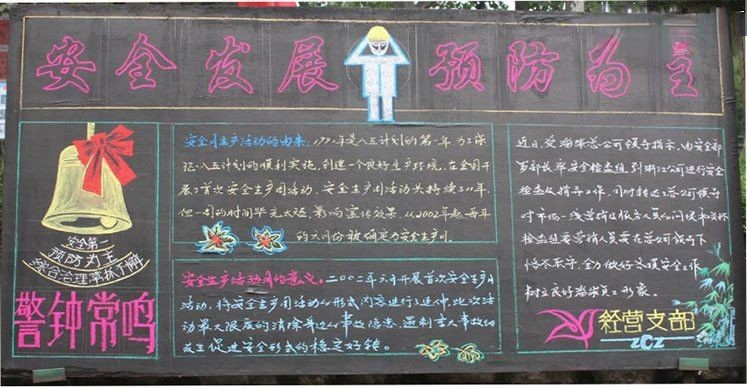 安全发展 预防为主
安全月生产活动的由来:1991年是八五计划的第一年.为了保
证八五计划的顺利实施,创造一个良好生产环境,在全国开
展了首次安全生产周活动,安全生产周活动共持续了11年
但一周的时间毕竟太短,影响宣传效果,从2002年起每年
的六月份被确定为安全生产月。
安全生产活动月的意义。二00二年六月开展首次安全生产月
活动,将安全生产周活动的形式内容进行了延伸,此次活
动最大限度的消除
促进安全形式的稳定好转。
近日,受 总公司领导指示,由安全部
部长 率安全检查组,到浙江公司进行安全
检查及指导工作,同时转达了总公司领导
对市场一线营销及服务人员
检查组要营销人员要在总公司领导下
坚持不懈,全力做好各项安全工作
树立良好 员工形象。
安全第一
预防为主
综合治理
警钟常鸣
经营支部
ZCZ